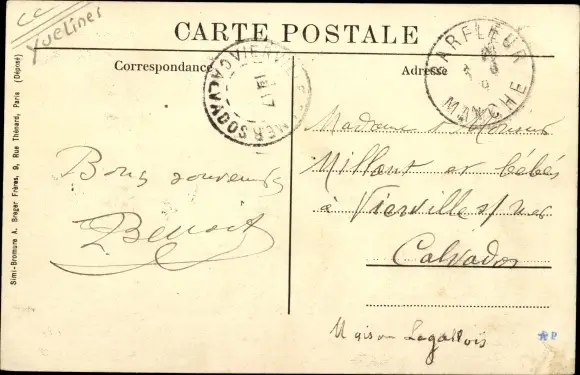 CC
Yvelines
CARTE POSTALE
Correspondance
Adresse
VIERVILLE-S-MER
18 17
CALVADOS
BARFLEUR
MANCHE
Bons souvenirs
Benoit
Madame & Monsieur
Millant et bébés
à Vierville s/mer
Calvados
Maison Legallois
Simi-Bromure A. Breger Frères, 9, Rue Thénard, Paris (Déposé)